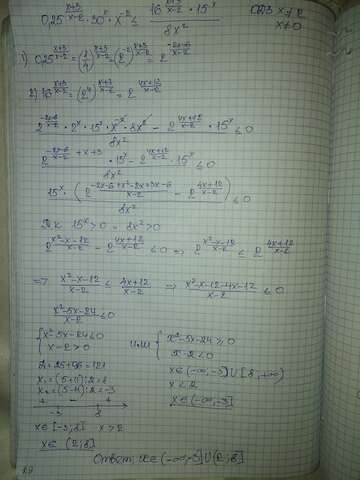 0,25^((x+3)/(x-2)) · 30^x · x^(-2) ≤ (16^((x+3)/(x-2)) · 15^x)/(8x²) ОДЗ x≠2
x≠0
1) 0,25^((x+3)/(x-2)) = (1/4)^((x+3)/(x-2)) = (2^(-2))^((x+3)/(x-2)) = 2^((-2x-6)/(x-2))
2) 16^((x+3)/(x-2)) = (2^4)^((x+3)/(x-2)) = 2^((4x+12)/(x-2))
(2^((-2x-6)/(x-2)) · 2^x · 15^x · x^(-2) · 8x² - 2^((4x+12)/(x-2)) · 15^x)/(8x²) ≤ 0
(2^((-2x-6)/(x-2) + x + 3) · 15^x - 2^((4x+12)/(x-2)) · 15^x)/(8x²) ≤ 0
(15^x · (2^((-2x-6+x²-2x+3x-6)/(x-2)) - 2^((4x+12)/(x-2))))/(8x²) ≤ 0
Т.к 15^x > 0 8x² > 0
2^((x²-x-12)/(x-2)) - 2^((4x+12)/(x-2)) ≤ 0 => 2^((x²-x-12)/(x-2)) ≤ 2^((4x+12)/(x-2))
=> (x²-x-12)/(x-2) ≤ (4x+12)/(x-2) => (x²-x-12-4x-12)/(x-2) ≤ 0
(x²-5x-24)/(x-2) ≤ 0
{ x²-5x-24≤0 или { x²-5x-24≥0
x-2>0 x-2<0
Д=25+96=121 x∈(-∞,-3]∪[8,+∞)
x₁=(5+11):2=8 x<2
x₂=(5-11):2=-3 x∈(-∞,-3]
+ - +
-3 8
x∈[-3;8] x>2
x∈(2;8]
Ответ: x∈(-∞,-3]∪(2;8]